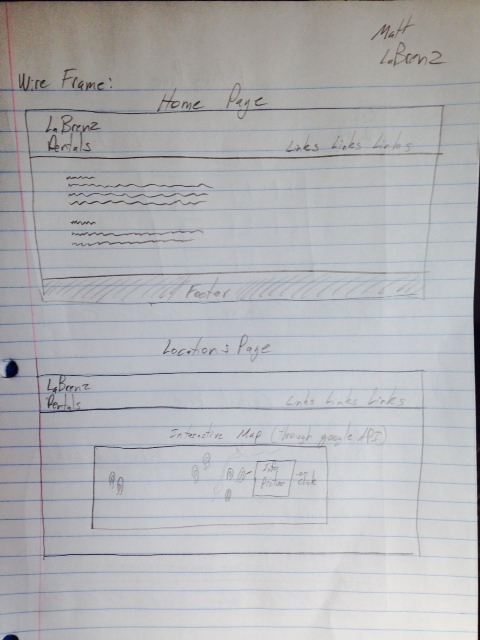 Matt
LaBrenz
Wire Frame:
Home Page
LaBrenz
Rentals
Links Links Links
Footer
Locations Page
LaBrenz
Rentals
Links Links Links
Interactive Map (through google API)
Info
Picture
on
click